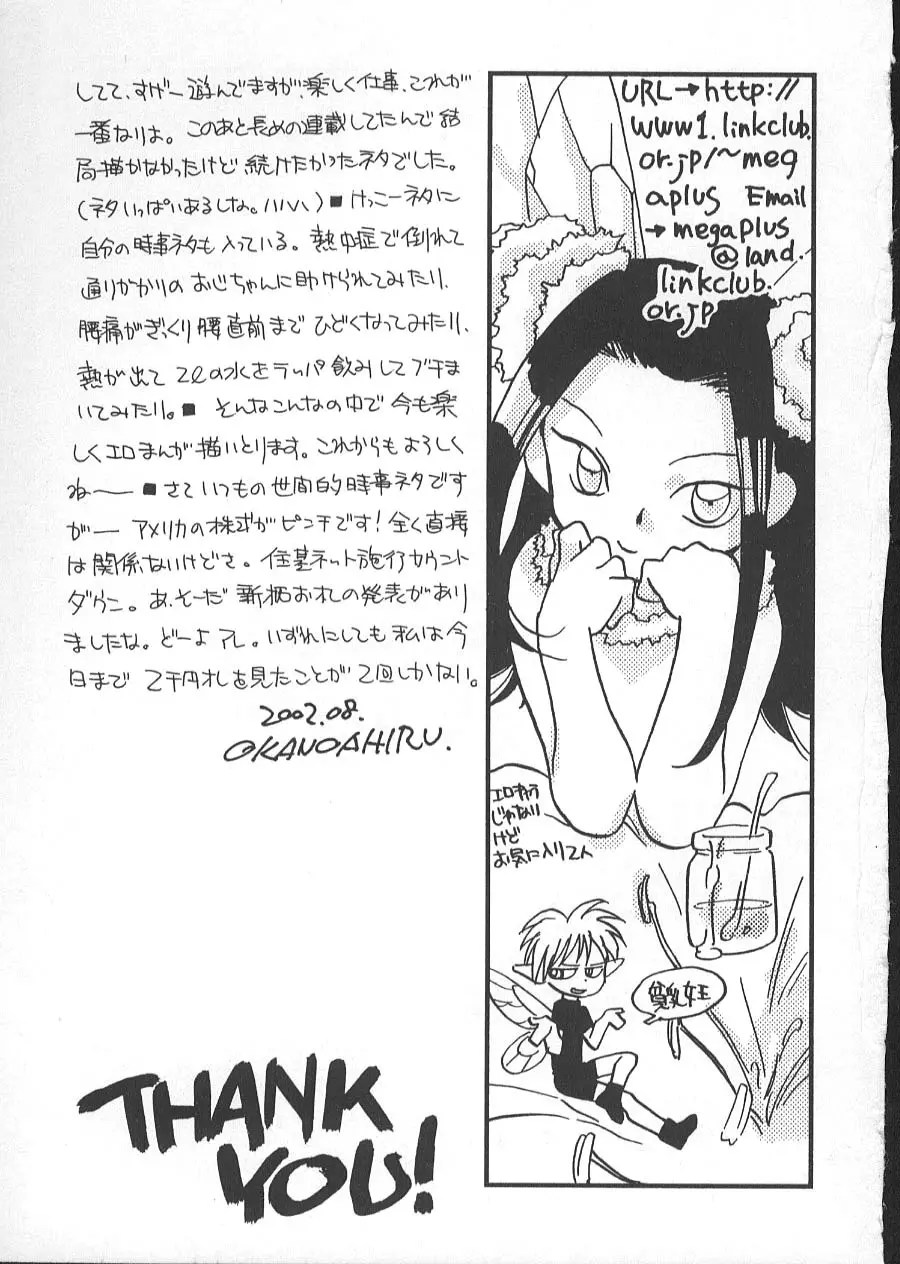 してて、すげー遊んでますが、楽しく仕事、これが
一番なりよ。このあと長めの連載してたんで結
局描かなかったけど続けたかったネタでした。
(ネタいっぱいあるしな。ハハハ)■けっこーネタに
自分の時事ネタも入っている。熱中症で倒れて
通りかかりのおじちゃんに助けられてみたり、
腰痛がぎっくり腰直前までひどくなってみたり、
熱が出て2ℓの水をラッパ飲みしてブチま
いてみたり。■そんなこんなの中で今も楽
しくエロまんが描いとります。これからもよろしく
ね──■さていつもの世間的時事ネタです
がー アメリカの株式がピンチです!全く直接
は関係ないけどさ。住基ネット施行カウント
ダウン。あ、そーだ新柄お札の発表があり
ましたな。どーよアレ。いずれにしても私は今
日まで2千円札を見たことが2回しかない。
2002.08.
OKANOAHIRU.
URL→http://
www1.linkclub.
or.jp/~meg
aplus Email
→megaplus
@land.
linkclub.
or.jp
エロキャラ
じゃない
けど
お気に入り2人
貧乳女王
THANK
YOU!